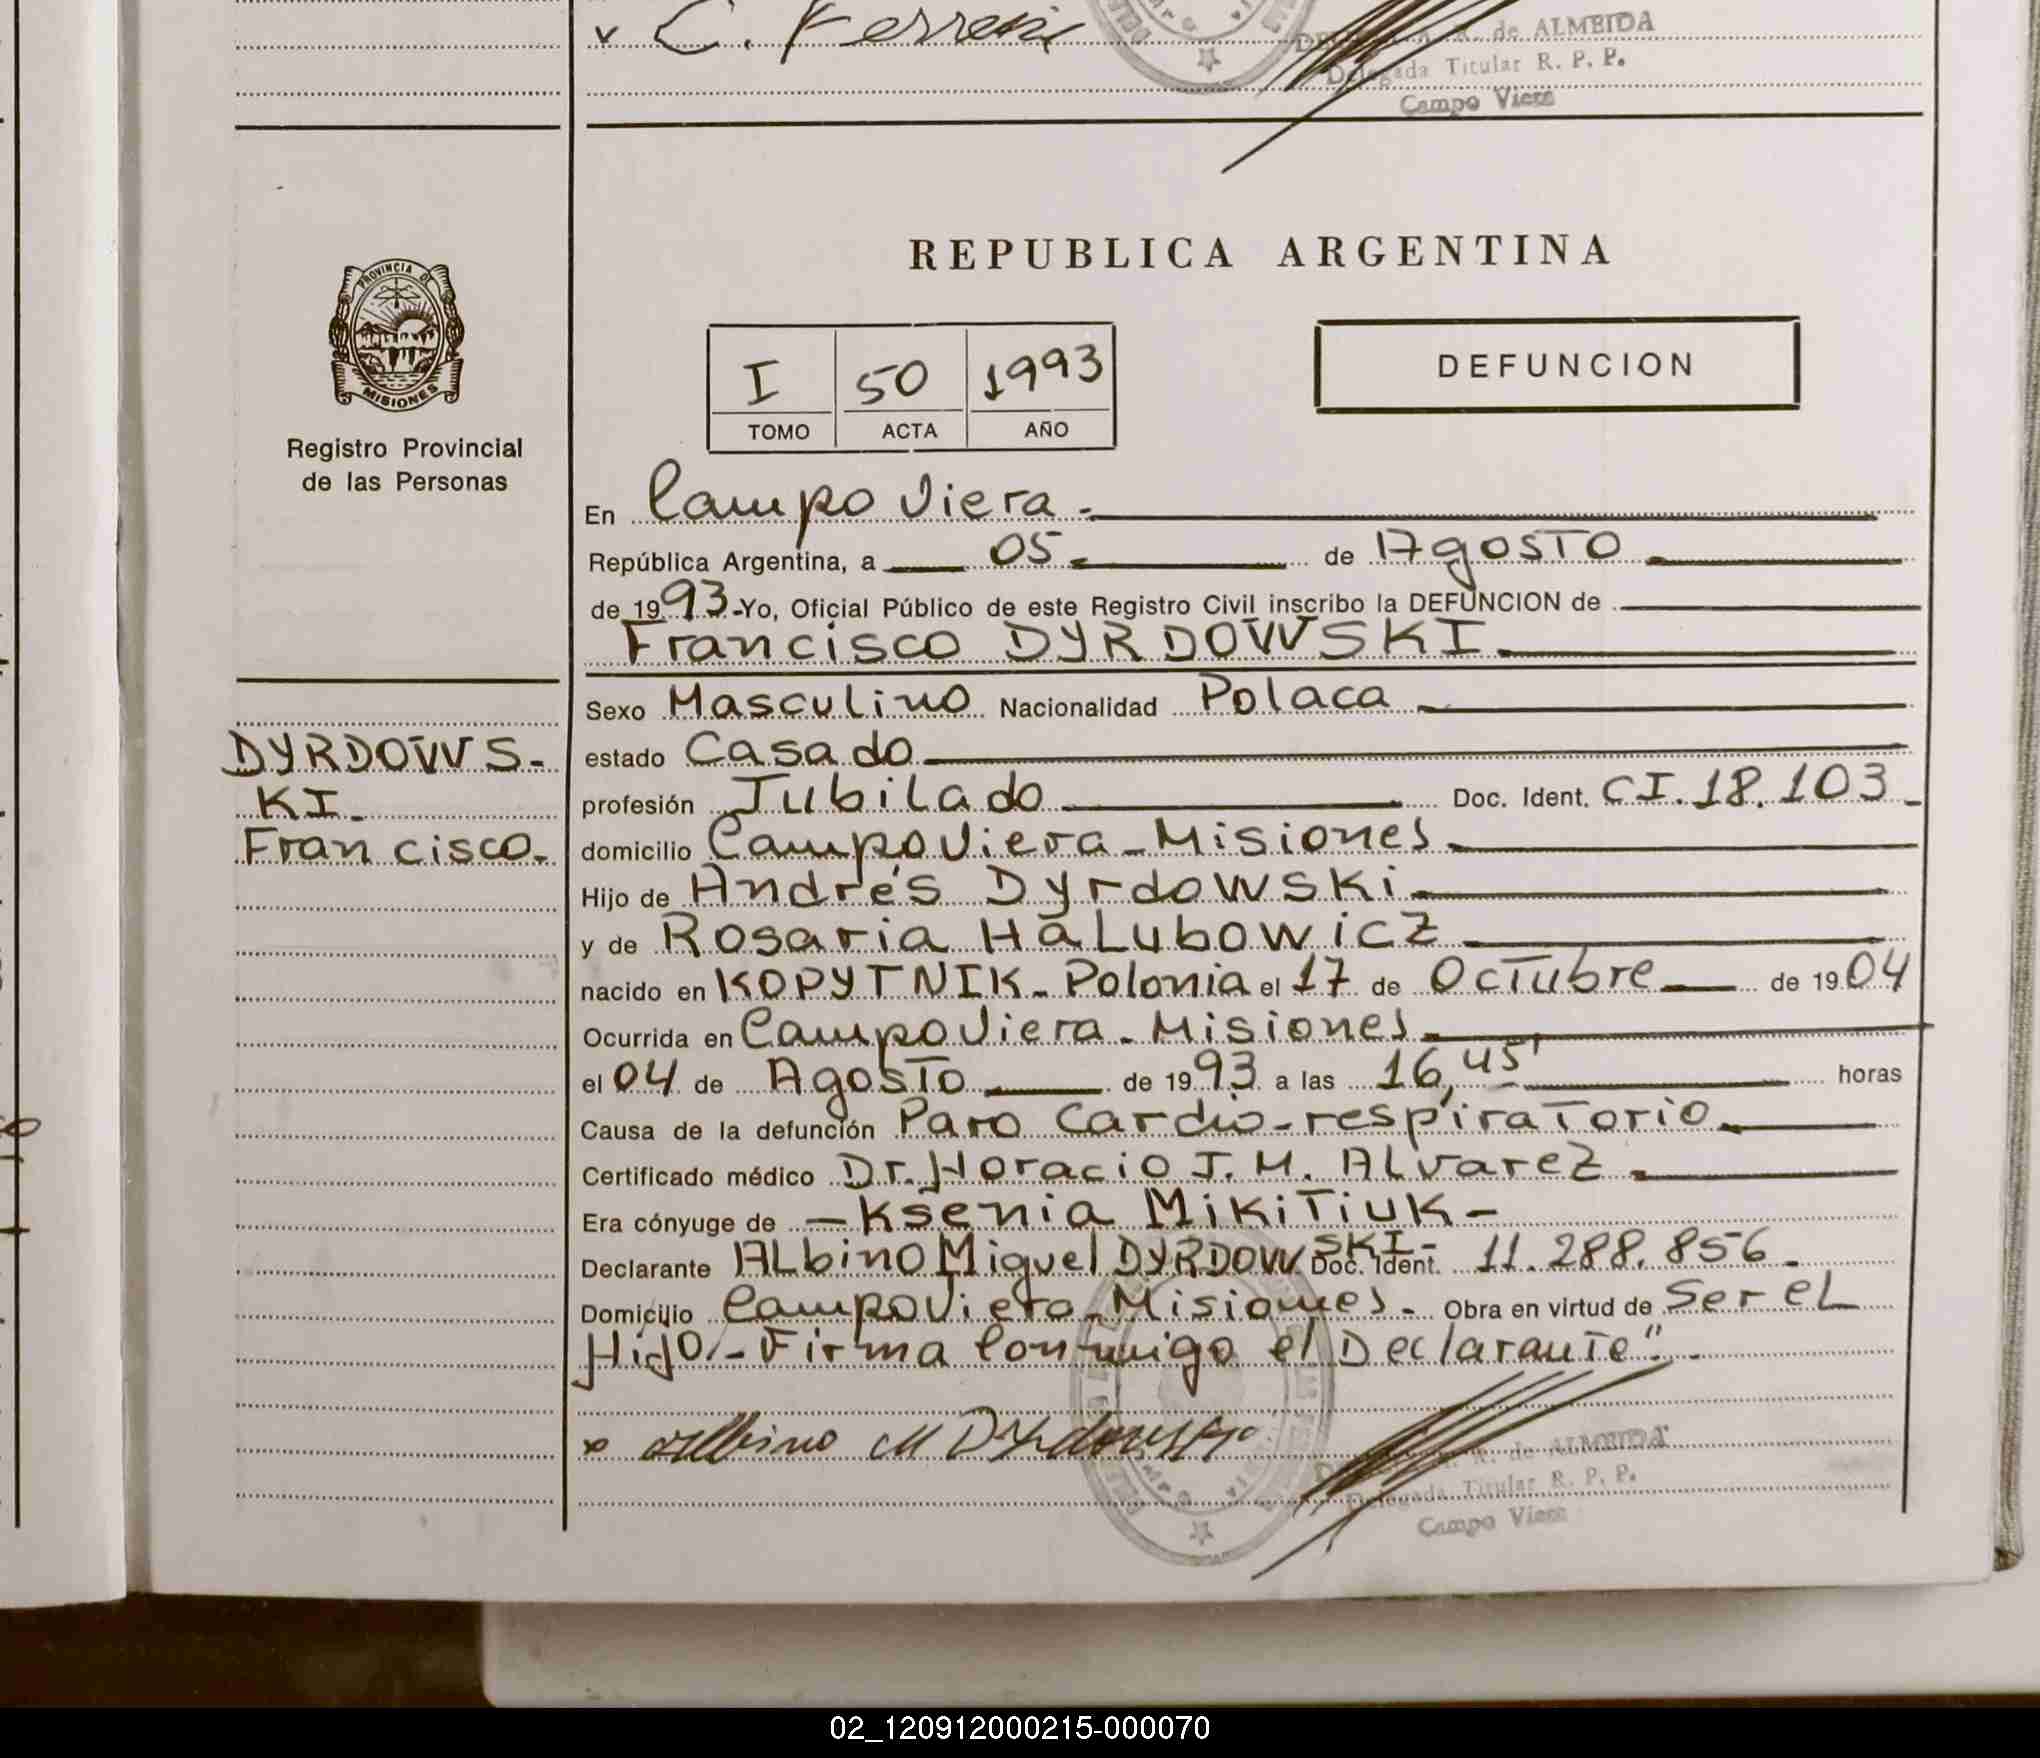 C. Ferreira
de ALMEIDA
Delegada Titular R. P. P.
Campo Viera
PROVINCIA DE
MISIONES
Registro Provincial
de las Personas
REPUBLICA ARGENTINA
I 50 1993
TOMO ACTA AÑO
DEFUNCION
En Campo Viera.
República Argentina, a 05 de Agosto
de 1993-Yo, Oficial Público de este Registro Civil inscribo la DEFUNCION de
Francisco DYRDOWSKI
DYRDOWS-
KI.
Francisco.
Sexo Masculino Nacionalidad Polaca
estado Casado
profesión Jubilado Doc. Ident. CI. 18.103
domicilio Campo Viera - Misiones
Hijo de Andrés Dyrdowski
y de Rosaria Halubowicz
nacido en KOPYTNIK - Polonia el 17 de Octubre de 1904
Ocurrida en Campo Viera - Misiones
el 04 de Agosto de 1993 a las 16,45' horas
Causa de la defunción Paro Cardio-respiratorio
Certificado médico Dr. Horacio J. M. Alvarez
Era cónyuge de - Ksenia Mikitiuk -
Declarante Albino Miguel DYRDOWSKI - Doc. Ident. 11.288.856.
Domicilio Campo Viera - Misiones - Obra en virtud de Ser el
Hijo/- Firma Conmigo el Declarante".
x Albino M Dyrdowski
A. de ALMEIDA
Delegada Titular R. P. P.
Campo Viera
02_120912000215-000070